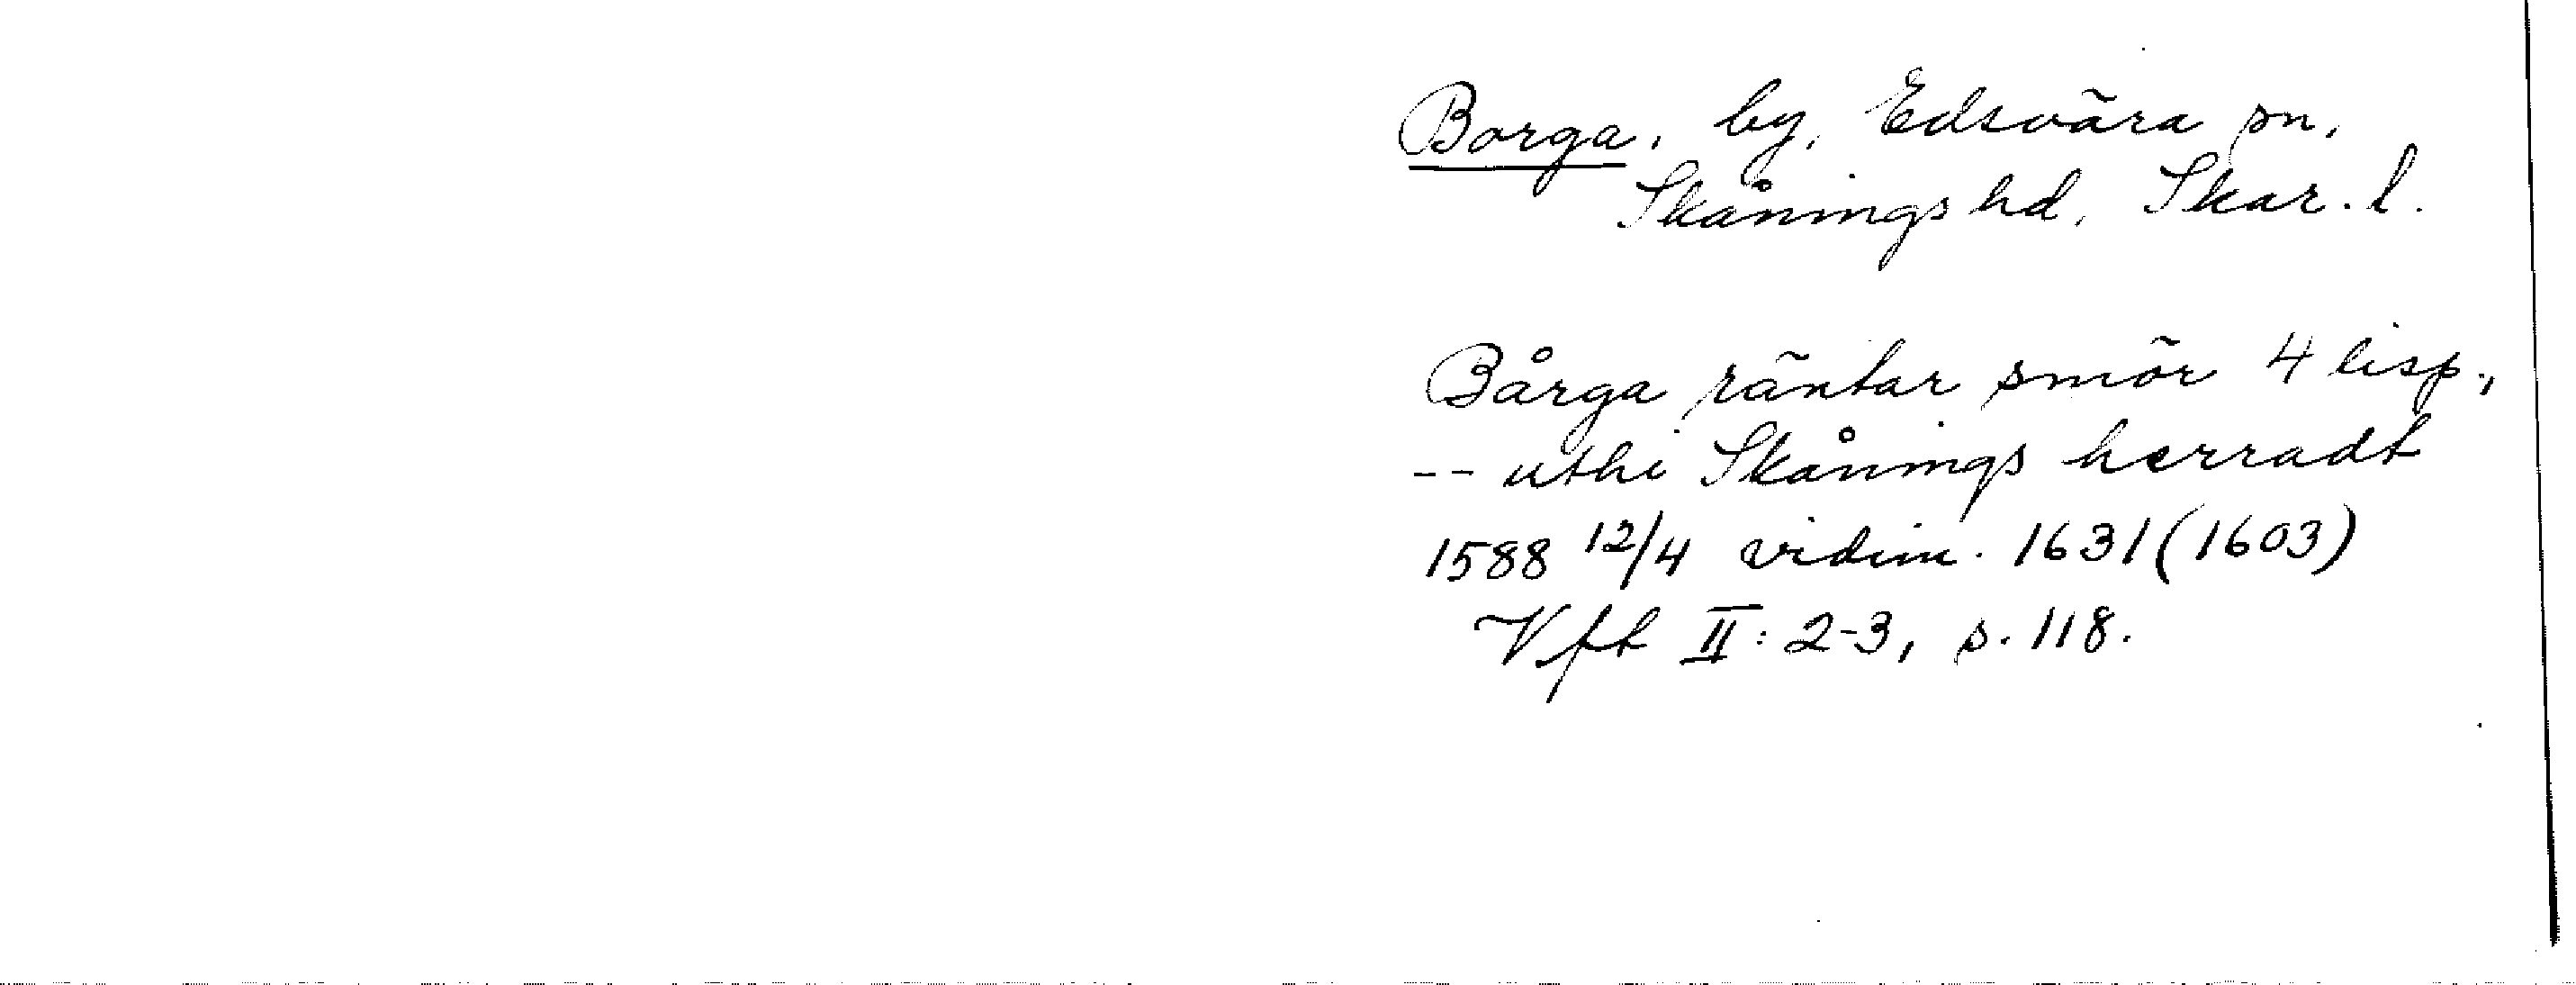 Borga, by, Edsvära sn,
Skånings hd, Skar. l.
Bårga räntar smör 4 lisp.,
-- uthi Skånings herradt
1588 12/4 vidim. 1631 (1603)
Vft II: 2-3, s. 118.